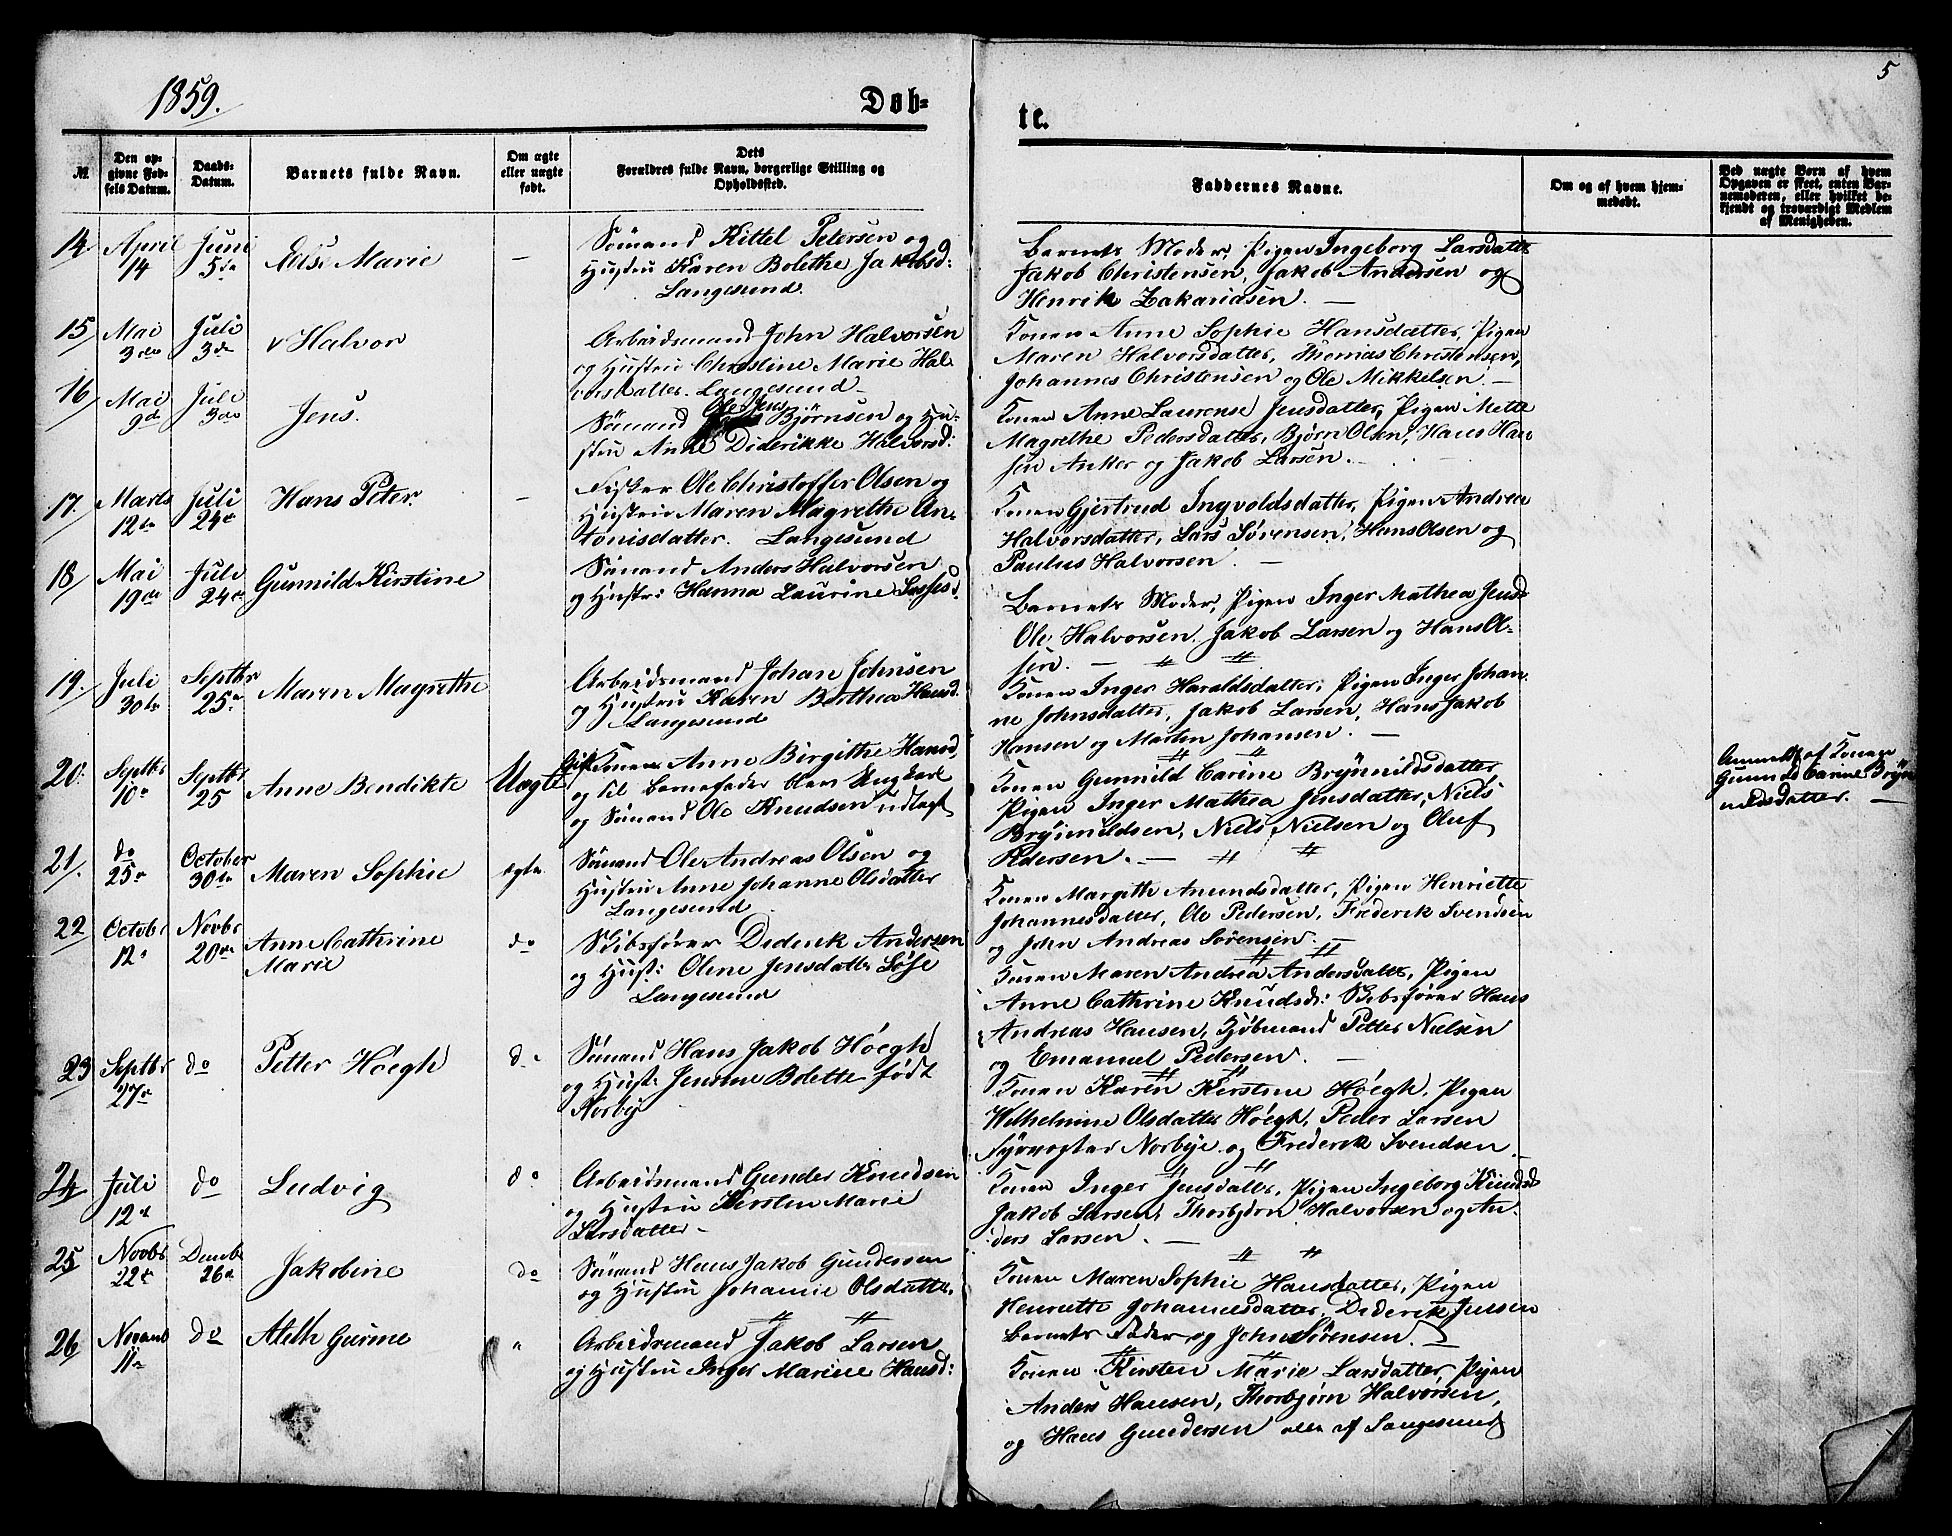 5
1859.
Døb=
te.
№
Den op-
givne Fød-
sels Datum.
Daabs-
Datum.
Barnets fulde Navn.
Om ægte
eller uægte
født.
Dets
Forældres fulde Navn, borgerlige Stilling og
Opholdssted.
Faddernes Navne.
Om og af hvem hjem-
medøbt.
Ved uægte Børn af hvem
Opgaven er skeet, enten Bar-
nemoderen, eller hvilket be-
kjendt og troværdigt Medlem
af Menigheden.
14 April 14 Juni 5te Else Marie —
Sömand Kittel Petersen og
Hustru Karen Bolethe Jakobsd:
Langesund.
Barnets Moder, Pigen Ingeborg Larsdatter
Jakob Christensen, Jakob Andersen og
Henrik Zakariasen. —
15 Mai 3die Juli 3die Halvor
Arbeidsmand John Halvorsen
og Hustru Christine Marie Hal-
vorsdatter. Langesund —
Konen Anne Sophie Hansdatter, Pigen
Maren Halvorsdatter, Thomas Christensen,
Johannes Christensen og Ole Mikkelsen. —
16 Mai 9de Juli 3die Jens.
Ole Jens
Sömand Bjørnsen og Hu-
stru Anne Diderikke Halvorsd:
Konen Anne Laurense Jensdatter, Pigen Mette
Magrethe Pedersdatter, Bjørn Olsen, Hans Han
sen Anker og Jakob Larsen. —
17. Marts 12te Juli 24e Hans Peter. —
Fisker Ole Christoffer Olsen og
Hustru Maren Magrethe An-
tonisdatter. Langesund
Konen Gjertrud Ingvoldsdatter, Pigen Andrea
Halvorsdatter, Lars Sørensen, Hans Olsen og
Paulus Halvorsen. —
18 Mai 19de Juli 24e Gunnild Kirstine
Sömand Anders Halvorsen
og Hustr: Hanna Laurine
Barnets Moder, Pigen Inger Mathea Jensd
Ole Halvorsen, Jakob Larsen og Hans Ol-
sen. —
19. Juli 30te Septbr 25e Maren Magrethe
Arbeidsmand Johan Johnsen
og Hustru Karen Berthea Hansd.
Langesund
Konen Inger Haraldsdatter, Pigen Inger Johan
ne Johnsdatter, Jakob Larsen, Hans Jakob
Hansen og Martin Johansen. —
20. Septbr 10e Septbr 25 Anne Bendikte Uægte
Gift Konen Anne Birgithe Hansd,
og til Barnefader blev Ungkarl
og Sömand Ole Knudsen udlagt
Konen Gunnild Carine Brynnildsdatter
Pigen Inger Mathea Jensdatter, Niels
Brynnildsen, Niels Nielsen og Oluf
Pedersen. —
Anmeldt af Konen
Gunnild Carine Bryn
nildsdatter. —
21. do 25e October 30te Maren Sophie ægte
Sömand Ole Andreas Olsen og
Hustru Anne Johanne Olsdatter
Langesund
Konen Margith Amundsdatter, Pigen Henriette
Johannesdatter, Ole Pedersen, Frederik Svendsen
og John Andreas Sørensen. —
22 Octobr 12e Novbr 20de Anne Cathrine
Marie do
Skibsfører Diderik Andersen
og Hust: Olene Jensdatter
Langesund
Konen Maren Andrea Andersdatter, Pigen
Anne Cathrine Knudsd: Skibsfører Hans
Andreas Hansen, Kjöbmand Petter Nielsen
og Emanuel Pedersen. —
23 Septbr 27e do Petter Höegh do
Sömand Hans Jakob Höegh
og Hust: Jensine Bolette født
Norbÿ
Konen Karen Kirstine Höegh, Pigen
Wilhelmine Olsdatter Höegh, Peder Larsen
Fyrvogter Norbye og Frederik Svendsen —
24 Juli 12e do Ludvig do
Arbeidsmand Gunder Knudsen
og Hustru Kirsten Marie
Larsdatter —
Konen Inger Jensdatter, Pigen Ingeborg Knudsd
Jakob Larsen, Thorbjörn Halvorsen og An-
ders Larsen. —
25 Novbr 22e Decmbr 26e Jakobine do
Sömand Hans Jakob Gundersen
og Hustru Johanne Olsdatter,
Konen Maren Sophie Hansdatter, Pigen
Henriette Johannesdatter, Diderik Jensen
Barnets Fader og John Sørensen.
26 Novemb 11e do Aleth Gurine "
Arbeidsmand Jakob Larsen
og Hustru Inger Marine Hansd:
Konen Kirsten Marie Larsdatter, Pigen
Anders Hansen, Thorbjörn Halvorsen,
og Hans Gundersen alle af Langesund